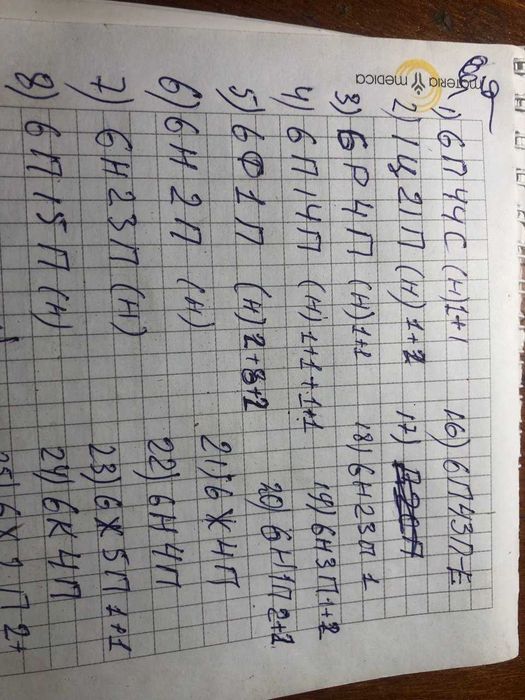 materia medica
1) 6П44С (Н) 1+1
2) 1Ц21П (Н) 1+1
3) 6Р4П (Н) 1+1
4) 6П14П (Н) 1+1+1+1
5) 6Ф1П (Н) 2+8+2
6) 6Н2П (Н)
7) 6Н23П (Н)
8) 6П15П (Н)
16) 6П43П-Е
17)
18) 6Н23П 1
19) 6Н3П 1+2
20) 6Н1П 2+1
21) 6Ж4П
22) 6Н4П
23) 6Ж5П 1+1
24) 6К4П